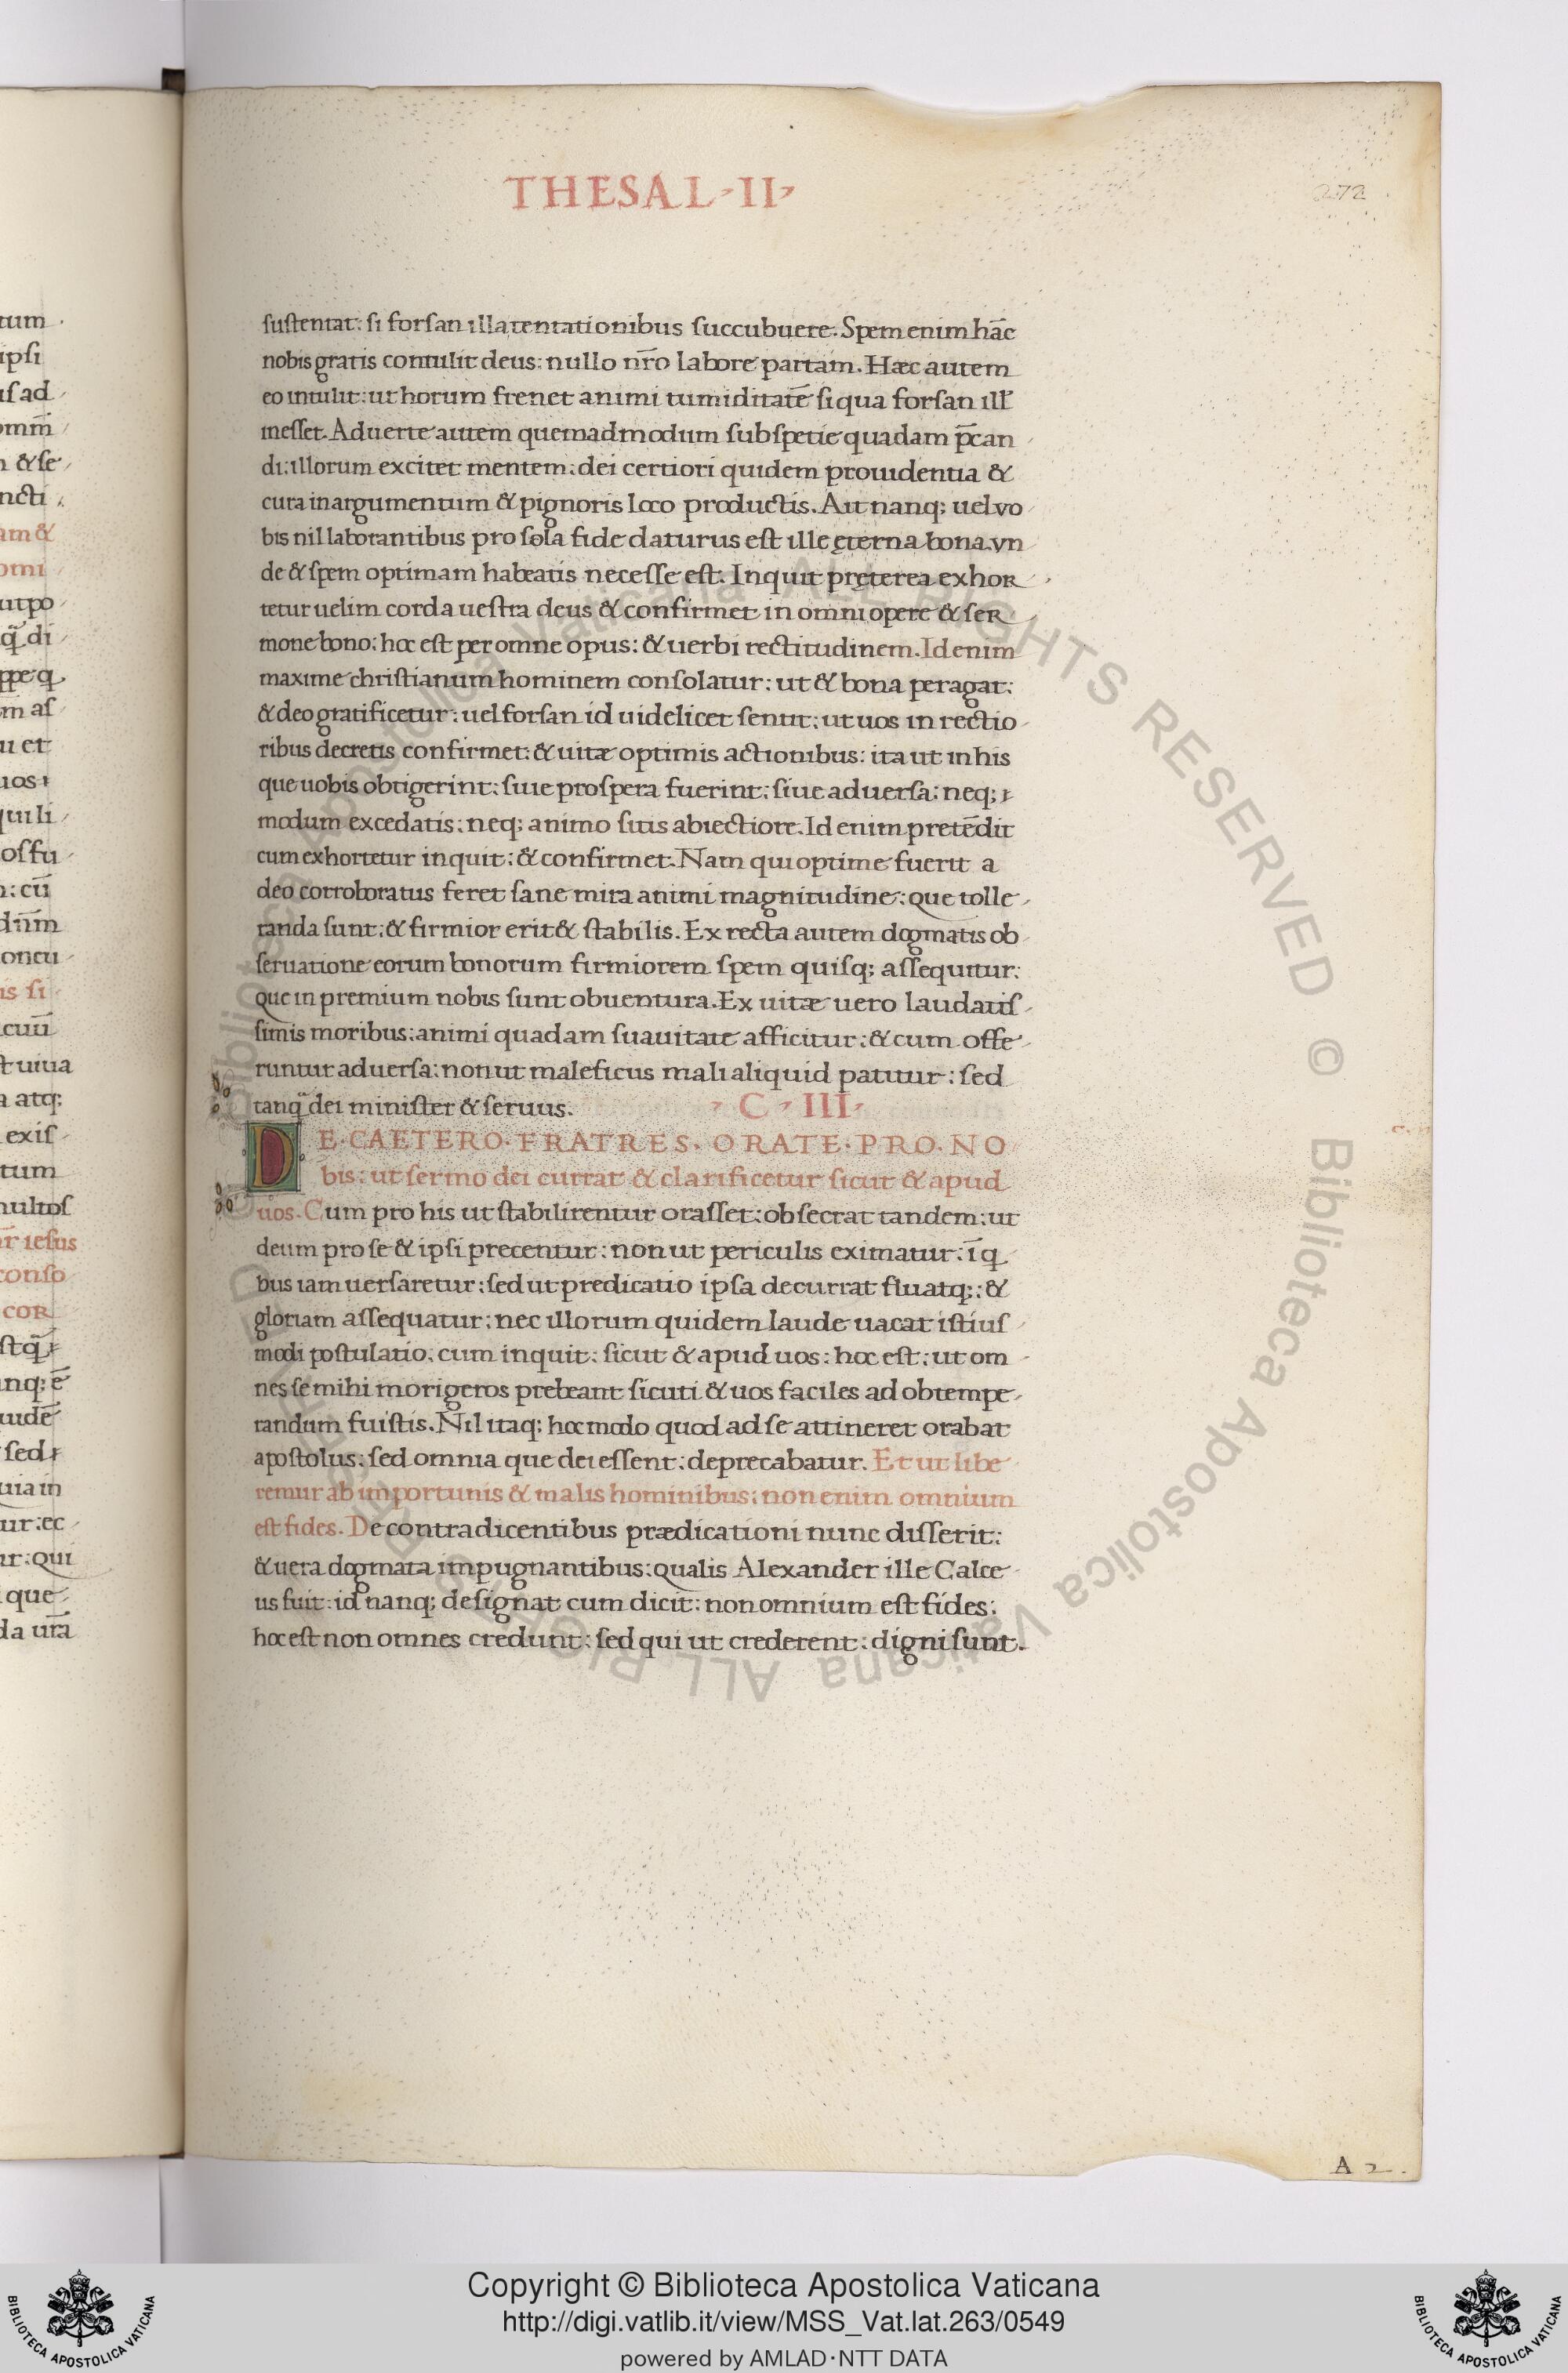 THESAL · II ·
272
sustentat: si forsan illa tentationibus succubuere. Spem enim hāc
nobis gratis contulit deus: nullo nr̄o labore partam. Hæc autem
eo intulit: ut horum frenet animi tumiditatē siqua forsan ill'
inesset. Aduerte autem quemadmodum sub spetie quadam p̄can
di: illorum excitet mentem: dei certiori quidem prouidentia &
cura in argumentum & pignoris loco productis. Ait nanq; uel vo
bis nil laborantibus pro sola fide daturus est ille ęterna bona. vn
de & spem optimam habeatis necesse est. Inquit pręterea exhor
tetur uelim corda uestra deus & confirmet in omni opere & ser
mone bono: hoc est per omne opus: & uerbi rectitudinem. Id enim
maxime christianum hominem consolatur: ut & bona peragat:
& deo gratificetur: uel forsan id uidelicet sentit: ut uos in rectio
ribus decretis confirmet: & uitæ optimis actionibus: ita ut in his
que uobis obtigerint: siue prospera fuerint: siue aduersa: neq;
modum excedatis: neq; animo sitis abiectiore. Id enim pretēdit
cum exhortetur inquit: & confirmet. Nam qui optime fuerit a
deo corroboratus feret sane mira animi magnitudine: que tolle
randa sunt: & firmior erit & stabilis. Ex recta autem dogmatis ob
seruatione eorum bonorum firmiorem spem quisq; assequitur:
que in premium nobis sunt obuentura. Ex uitæ uero laudatis
simis moribus: animi quadam suauitate afficitur: & cum offe
runtur aduersa: non ut maleficus mali aliquid patitur: sed
tanq̄ dei minister & seruus. · C · III ·
DE · CAETERO · FRATRES · ORATE · PRO · NO
bis: ut sermo dei currat & clarificetur sicut & apud
uos. Cum pro his ut stabilirentur orasset: obsecrat tandem: ut
deum pro se & ipsi precentur: non ut periculis eximatur: ī q
bus iam uersaretur: sed ut predicatio ipsa decurrat fluatq;: &
gloriam assequatur: nec illorum quidem laude uacat istius
modi postulatio, cum inquit: sicut & apud uos: hoc est: ut om
nes se mihi morigeros prebeant sicuti & uos faciles ad obtempe
randum fuistis. Nil itaq; hoc modo quod ad se attineret orabat
apostolus: sed omnia que dei essent: deprecabatur. Et ut libe
remur ab importunis & malis hominibus: non enim omnium
est fides. De contradicentibus prædicationi nunc disserit:
& uera dogmata impugnantibus: qualis Alexander ille Calce
us fuit: id nanq; designat cum dicit: non omnium est fides:
hoc est non omnes credunt: sed qui ut crederent: digni sunt.
A 2
Copyright © Biblioteca Apostolica Vaticana
http://digi.vatlib.it/view/MSS_Vat.lat.263/0549
powered by AMLAD·NTT DATA